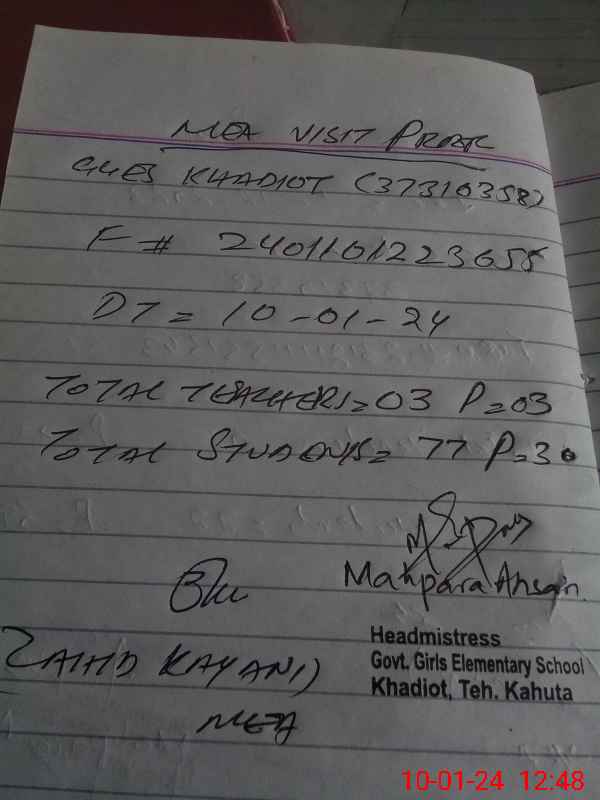 MEA VISIT PROOF
GGES KHADIOT (37310358)
F # 2401101223655
DT = 10-01-24
TOTAL TEACHERS = 03 P = 03
TOTAL STUDENTS = 77 P = 30
Mahpara Ahsan
Headmistress
Govt. Girls Elementary School
Khadiot, Teh. Kahuta
ZAHID KAYANI
MEA
10-01-24 12:48